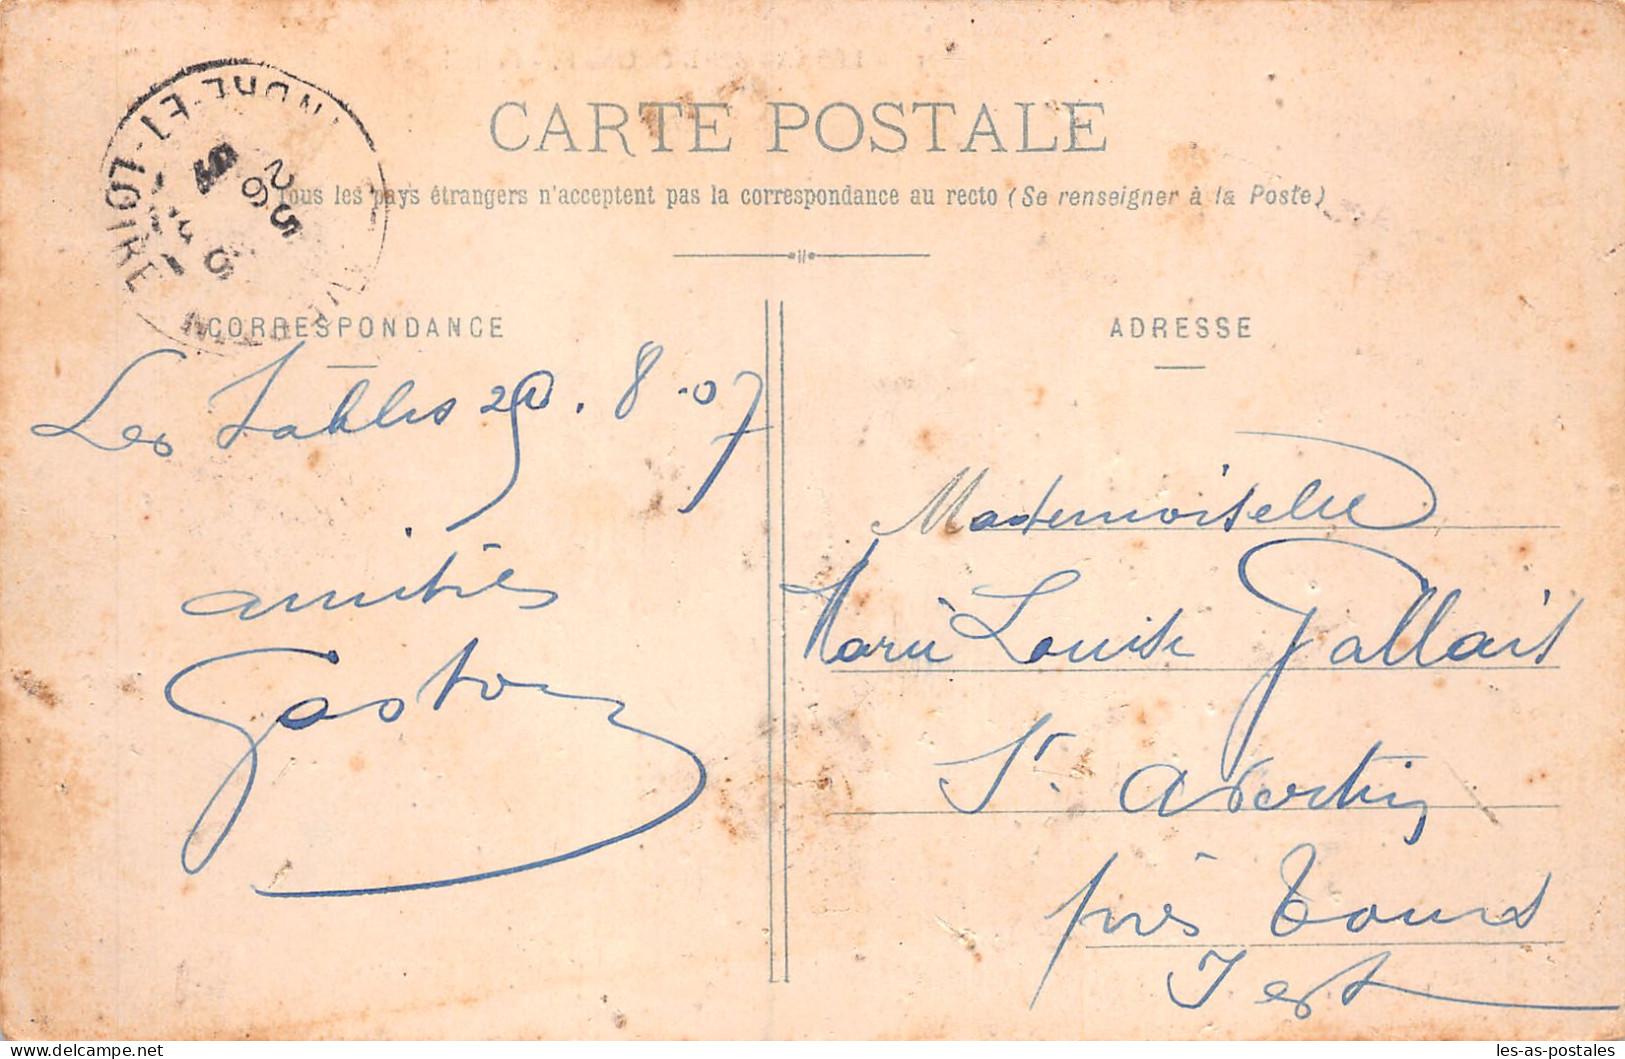 CARTE POSTALE
Tous les pays étrangers n'acceptent pas la correspondance au recto (Se renseigner à la Poste)
INDRE-ET-LOIRE
CORRESPONDANCE
ADRESSE
Les Sables 29.8.07
amitiés
Gaston
Mademoiselle
Marie Louise Gallais
St. Avertin
près Tours
I et L
les-as-postales